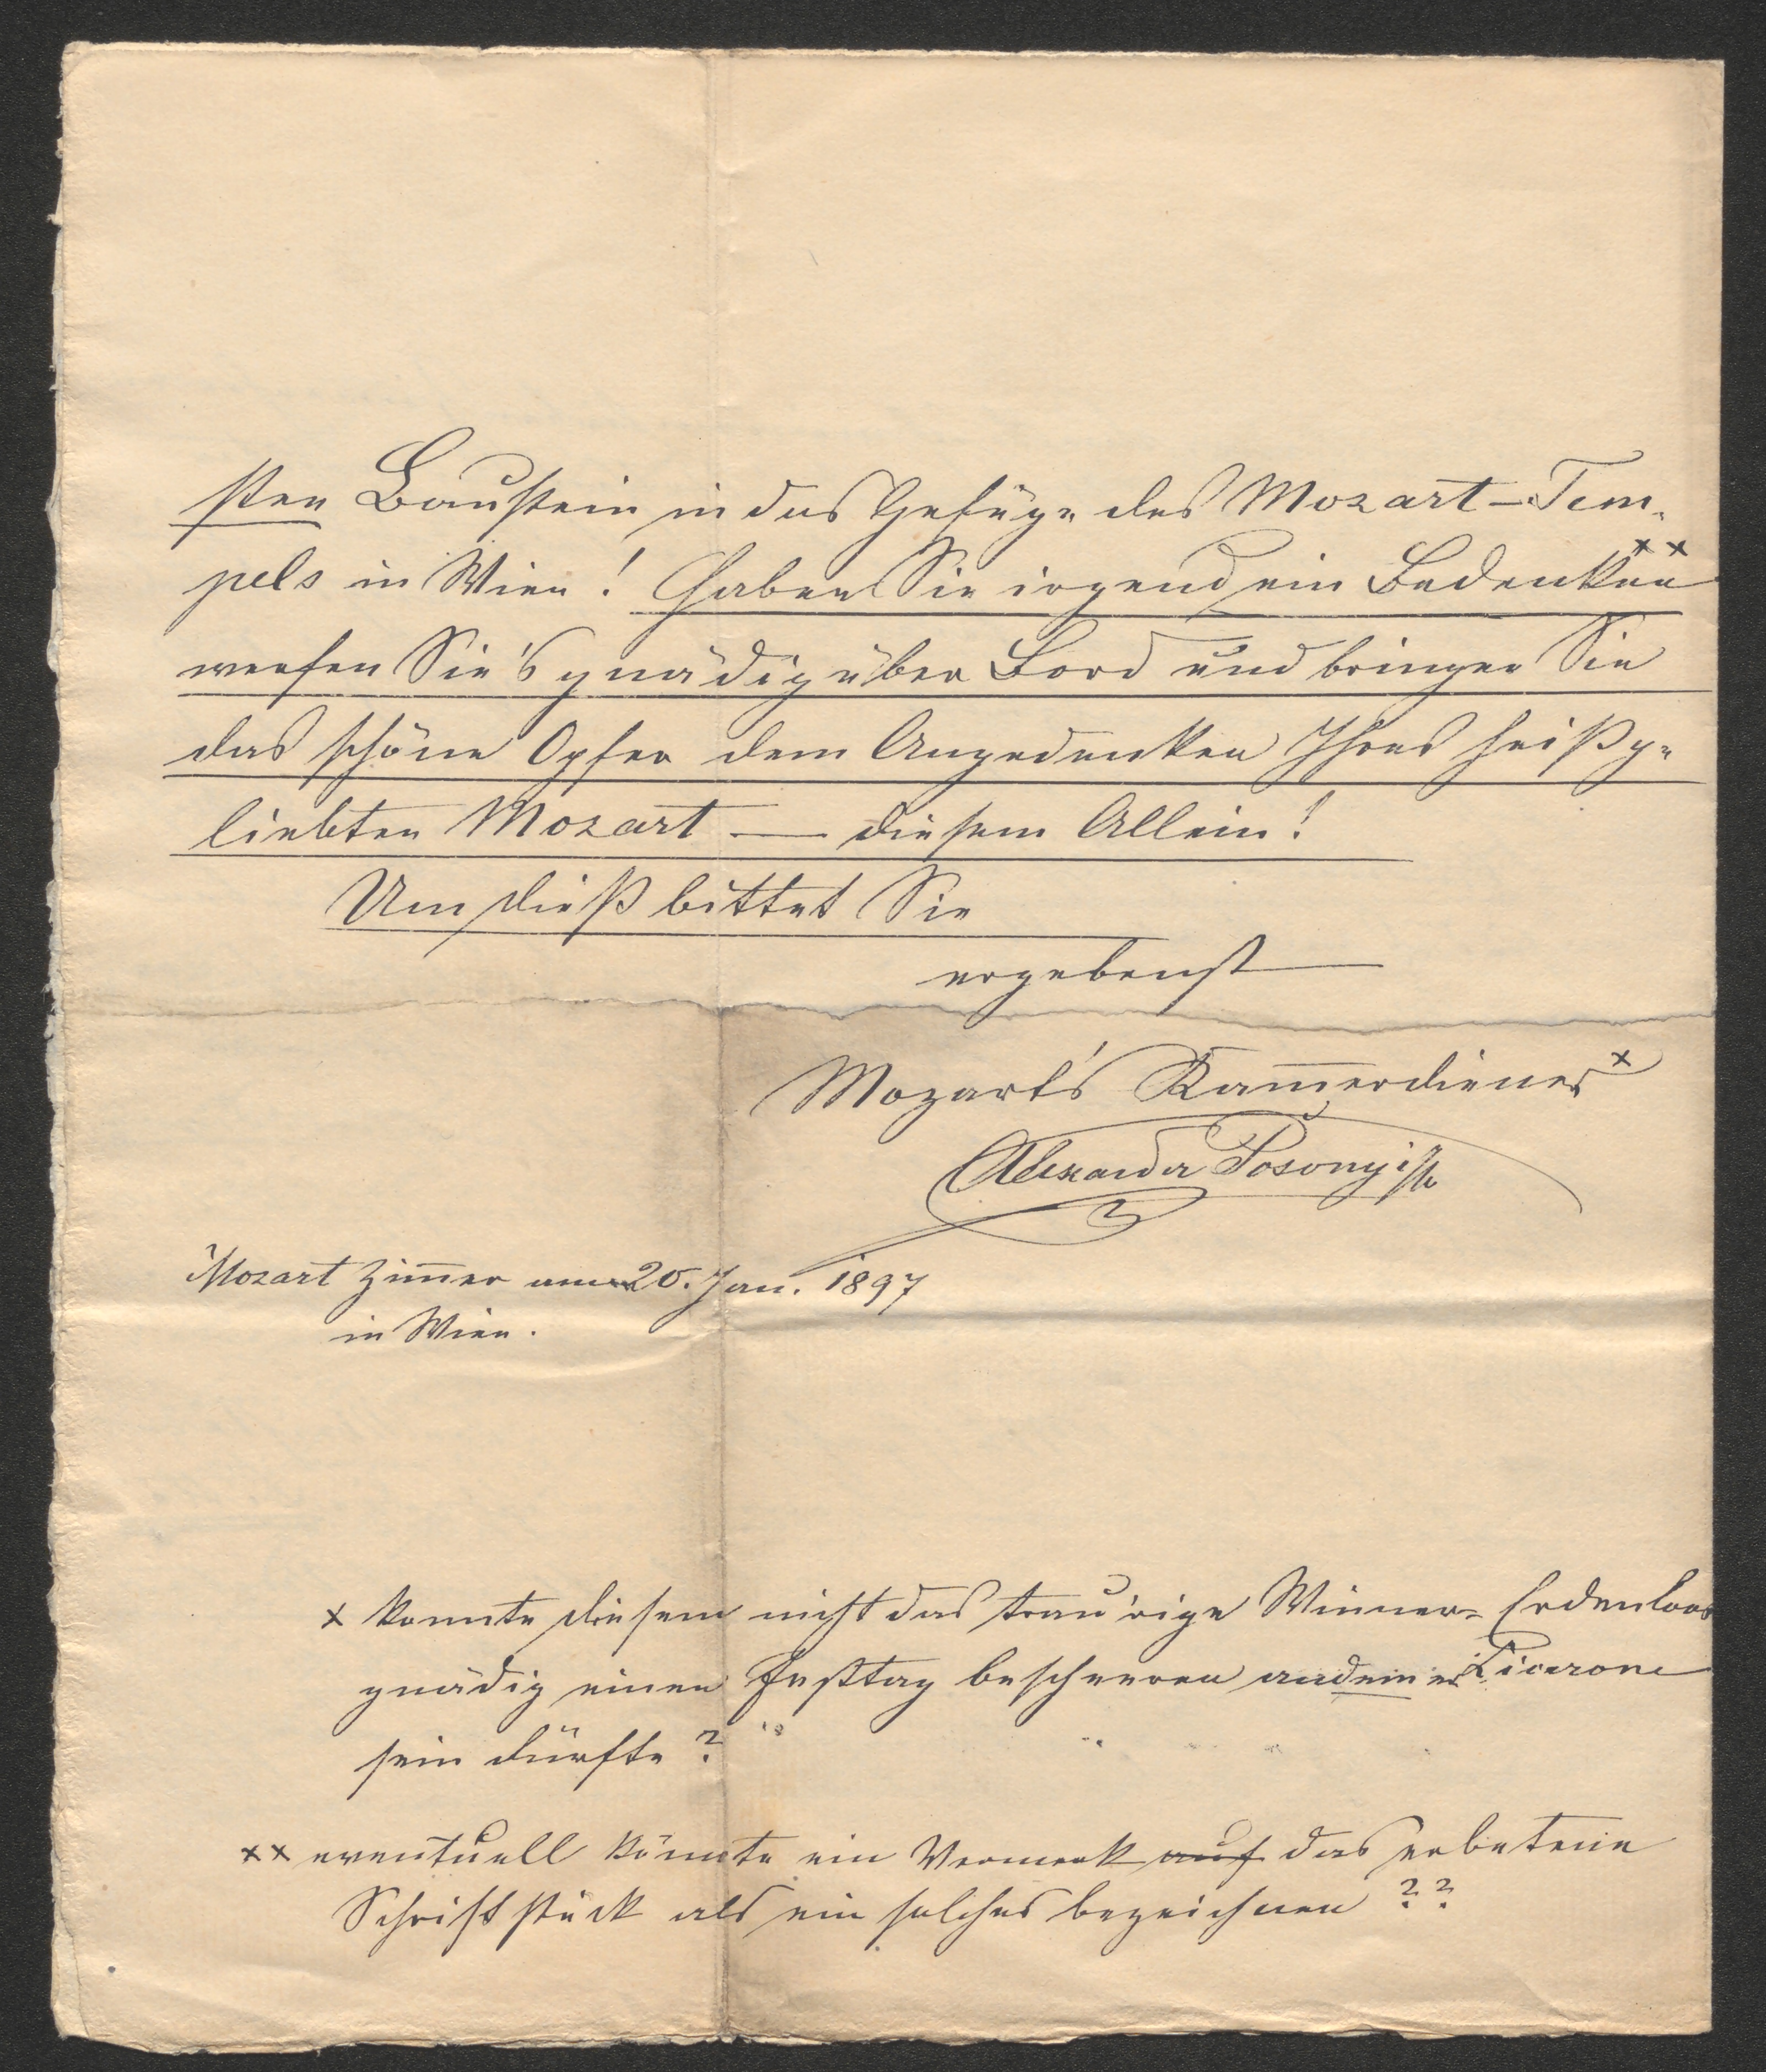 sten Baustein in das Gefüge des Mozart-Tem-
pels in Wien! Haben Sie irgend ein Bedenken ××
werfen Sie's gnädig über Bord und bringen Sie
das schöne Opfer dem Angedenken Ihres heißge-
liebten Mozart — diesem Allein!
Um dieß bittet Sie
ergebenst
Mozart's Kam̅erdiener ×
Alexander Posonyi
Mozart Zim̅er am 20. Jan. 1897
in Wien.
× konnte diesem nicht das traurige Wiener- Erdenloos
gnädig einen Festtag bescheeren an dem er Cicerone
sein dürfte?
×× eventuell könnte ein Vermerk auf das erbetene
Schriftstück als ein solches bezeichnen??